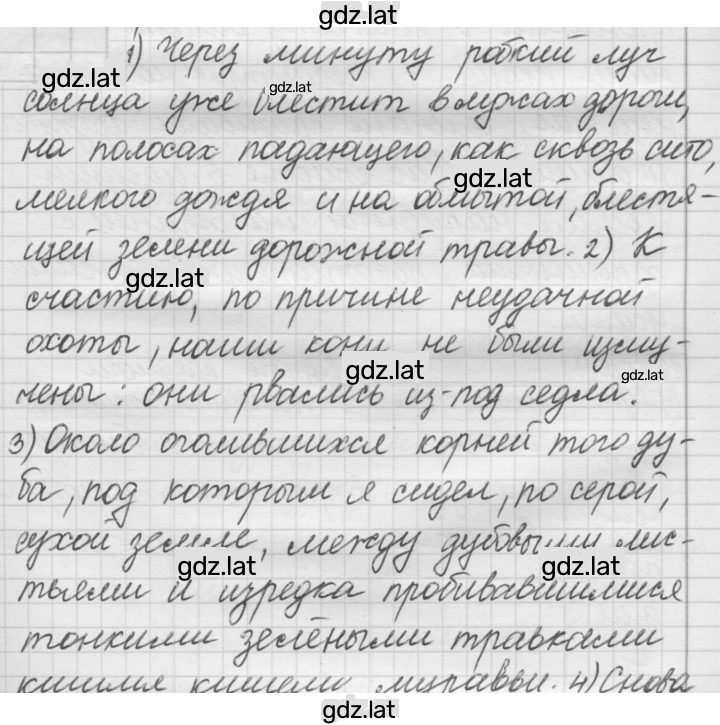 gdz.lat
1) Через минуту робкий луч
gdz.lat
gdz.lat
солнца уже блестит в лужах дороги,
на полосах падающего, как сквозь сито,
gdz.lat
мелкого дождя и на обмытой, блестя-
щей зелени дорожной травы. 2) К
gdz.lat
счастию, по причине неудачной
охоты, наши кони не были изму-
gdz.lat
gdz.lat
чены: они рвались из-под седла.
3) Около оголившихся корней того ду-
ба, под которым я сидел, по серой,
сухой земле, между дубовыми лис-
gdz.lat
gdz.lat
тьями и изредка пробивавшимися
тонкими зелёными травками
кишмя кишели муравьи. 4) Снова
gdz.lat